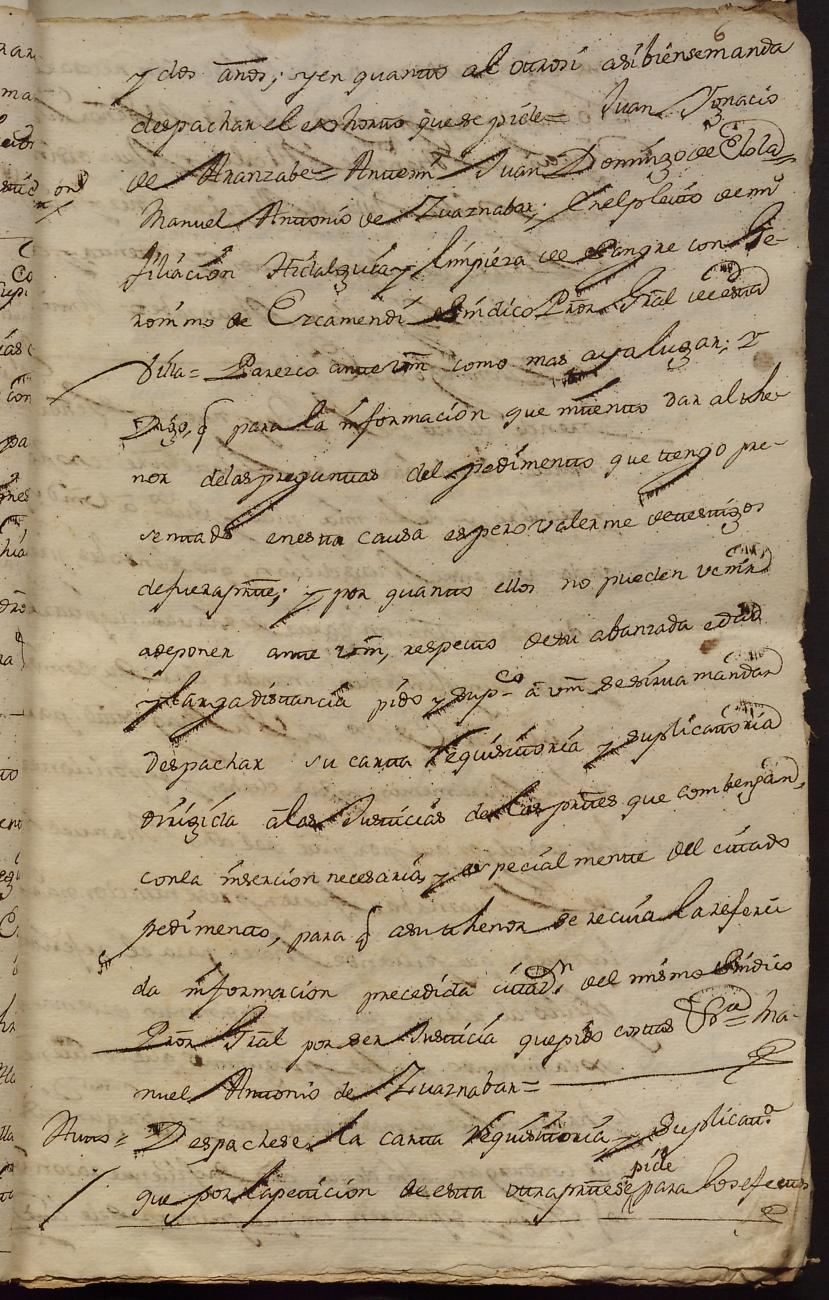 6
y dos años; y en quanto al otrosi asibiensemanda
despachar el exhorto que se pide= Juan Ignacio
de Aranzabe= Antemi Juan Domingo de Elola=
Manuel Antonio de Zuaznabar; en el pleito de mi
filiación Hidalguia y limpieza de Sangre con Ge-
ronimo de Ercamendi Sindico Pror. Gral de esta
Villa= Parezco ante vm como mas aya lugar; y
Digo, q para la informacion que intento dar al the-
nor delas preguntas del pedimento que tengo pre-
sentado enesta causa espero valerme detestigos
defuera parte; y por quanto ellos no pueden venir
adeponer ante vm, respecto desu abanzada edad
y larga distancia pido y supco a vm se sirva mandar
despachar su carta requisitoria y suplicatoria
dirigida alas Justicias de las partes que combengan,
conla insercion necesaria, y especialmente del citado
pedimento, para q asu thenor se reciva la referi
da informacion precedida citaon del mismo Sindico
Pror Gral por ser Justicia quepido costas Vª= Ma-
nuel Antonio de Zuaznabar=
Auto= Despachese la carta requisitoria y Suplicatª
que por la peticion de esta otra parte se pide para los efectos